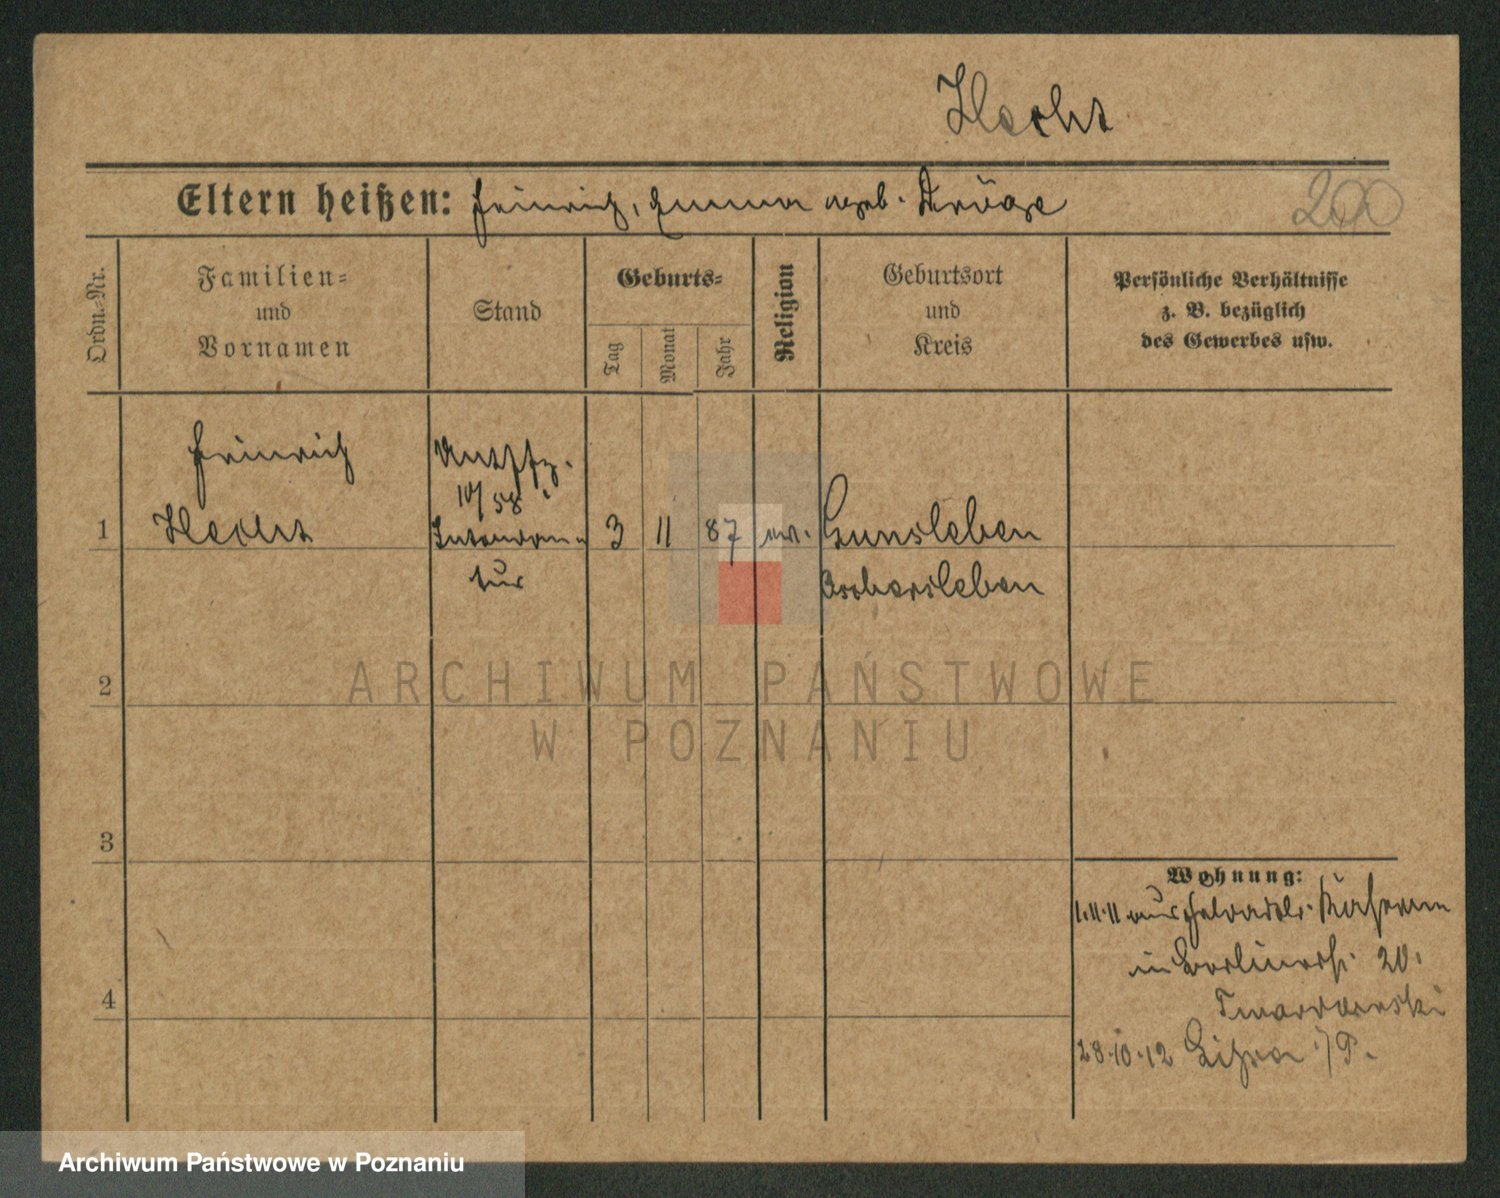 Hecht
Eltern heißen: Heinrich, Emma geb. Dröge
200
Ordn.-Nr.
Familien-
und
Vornamen
Stand
Geburts-
Tag
Monat
Jahr
Religion
Geburtsort
und
Kreis
Persönliche Verhältnisse
z. B. bezüglich
des Gewerbes usw.
1
Heinrich
Hecht
10/58
Intendan-
tur
3 11 87 ev.
Gunsleben
Oschersleben
2
ARCHIWUM PAŃSTWOWE
W POZNANIU
3
4
Wohnung:
1.11.11 aus Kasern
in Berlinerst. 20.
Twardowski
28.10.12 Lissa i/P.
Archiwum Państwowe w Poznaniu